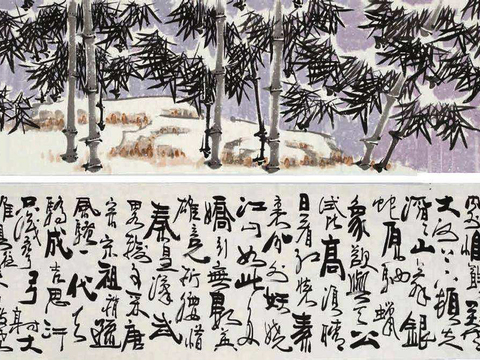 外惟餘莽莽
大河上下頓失
滔滔山舞銀
蛇原馳蠟
象欲與天公
試比高須晴
日看紅裝素
裹分外妖嬈
江山如此多
嬌引無數英
雄竞折腰惜
秦皇漢武
略輸文采唐
宗宋祖稍遜
風騷一代天
驕成吉思汗
只識彎弓射大